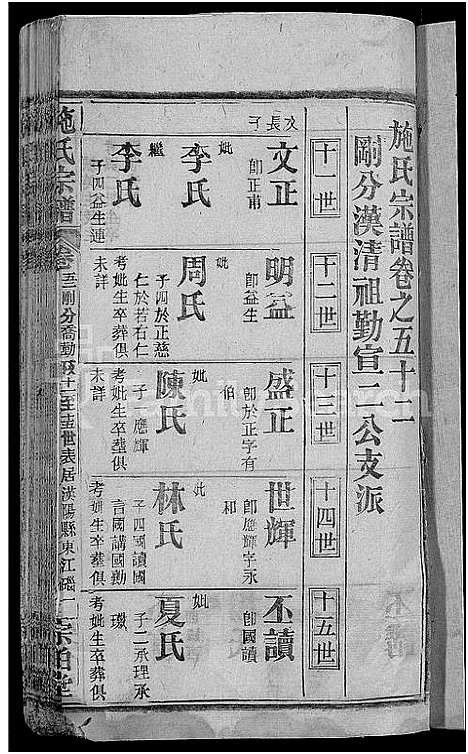 施氏宗譜卷之五十二
剛分漢清祖勤宣二公支派
十一世
十二世
十三世
十四世
十五世
文長子
文正
即正甫
妣
李氏
繼
李氏
子四益生連
明益
即益生
妣
周氏
子四於正慈
仁於若右仁
考妣生卒葬俱
未詳
盛正
即於正字有
伯
妣
陳氏
子一應輝
考妣生卒塟俱
未詳
世輝
即應輝字永
和
妣
林氏
子四國讀國
言國講國勷
考妣生卒塟俱
丕讀
即國讀
妣
夏氏
子二承理承
璥
考妣生卒葬俱
施氏宗譜
卷之五二剛分喬勳
世表居漢陽縣東江磯
一